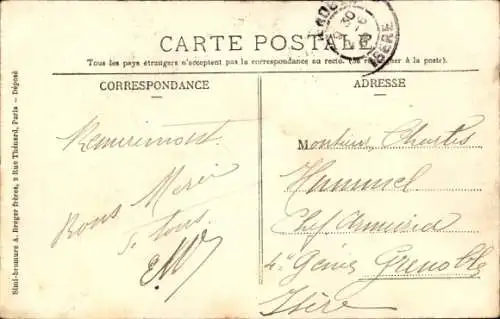 CARTE POSTALE
Tous les pays étrangers n'acceptent pas la correspondance au recto. (Se renseigner à la poste).
CORRESPONDANCE
Remiremont.
Bons
de tous.
ADRESSE
Monsieur Charles
Hummel
Chef
4e Génie Grenoble
Isère
30
ISERE
Simi-bromure A. Breger frères, 9 Rue Thénard, Paris — Déposé